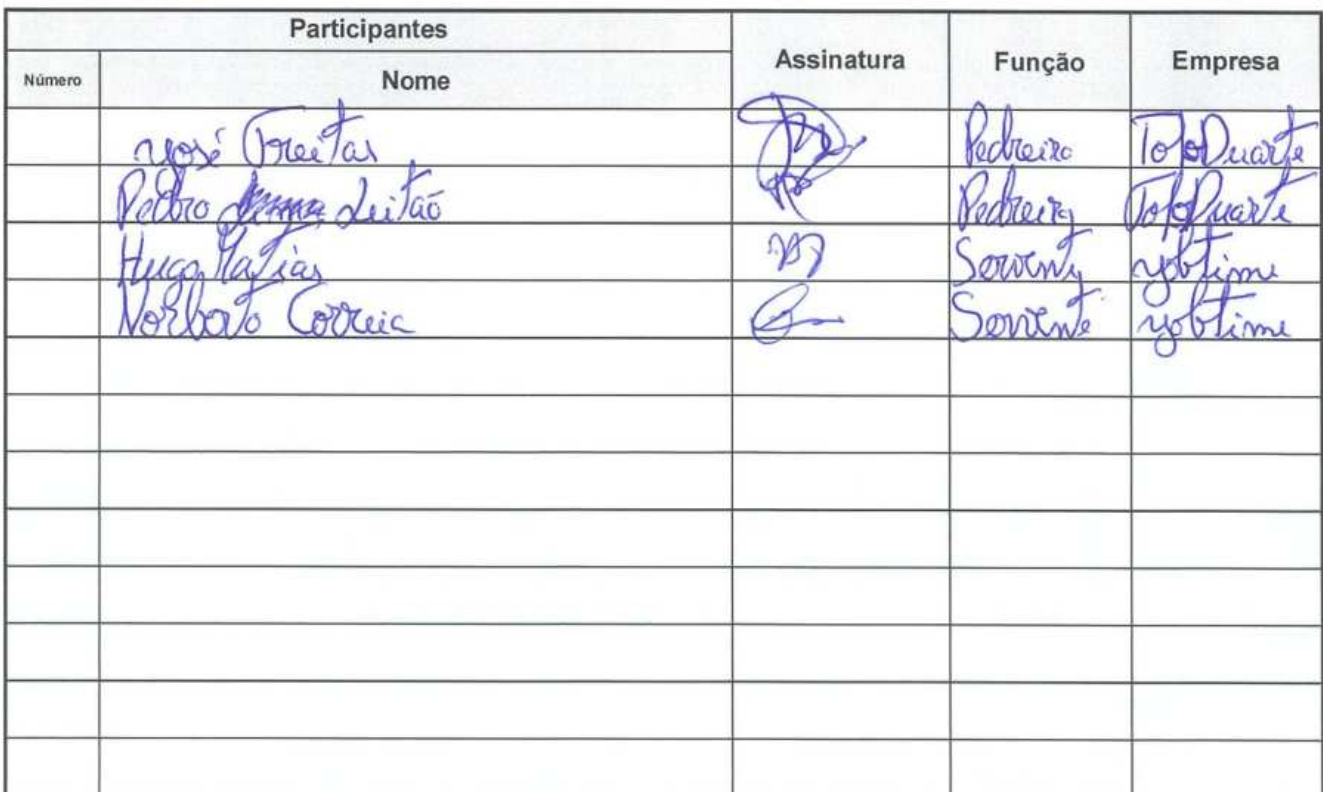 Participantes
Assinatura Função Empresa
Número Nome
José Freitas Pedreiro TopoDuarte
Pedro Leitão Pedreiro TopoDuarte
Hugo Matias Servente Jobtime
Norberto Correia Servente Jobtime